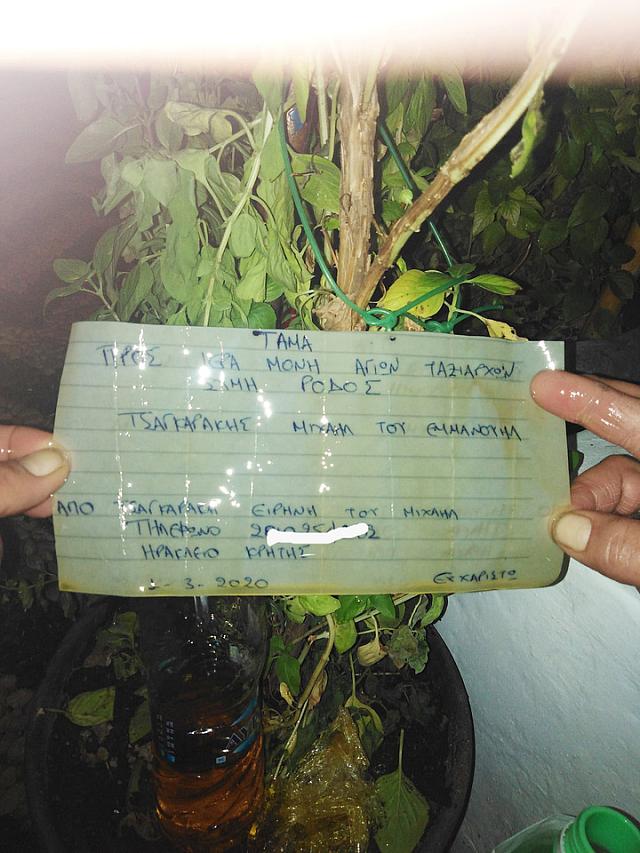 ΤΑΜΑ
ΠΡΟΣ ΙΕΡΑ ΜΟΝΗ ΑΓΙΩΝ ΤΑΞΙΑΡΧΩΝ
ΣΙΜΗ ΡΟΔΟΣ
ΤΣΑΓΚΑΡΑΚΗΣ ΜΙΧΑΗΛ ΤΟΥ ΕΜΜΑΝΟΥΗΛ
ΑΠΟ ΤΣΑΓΚΑΡΑΚΗ ΕΙΡΗΝΗ ΤΟΥ ΜΙΧΑΗΛ
ΤΗΛΕΦΩΝΟ
ΗΡΑΚΛΕΙΟ ΚΡΗΤΗΣ
3-2020 ΕΥΧΑΡΙΣΤΩ